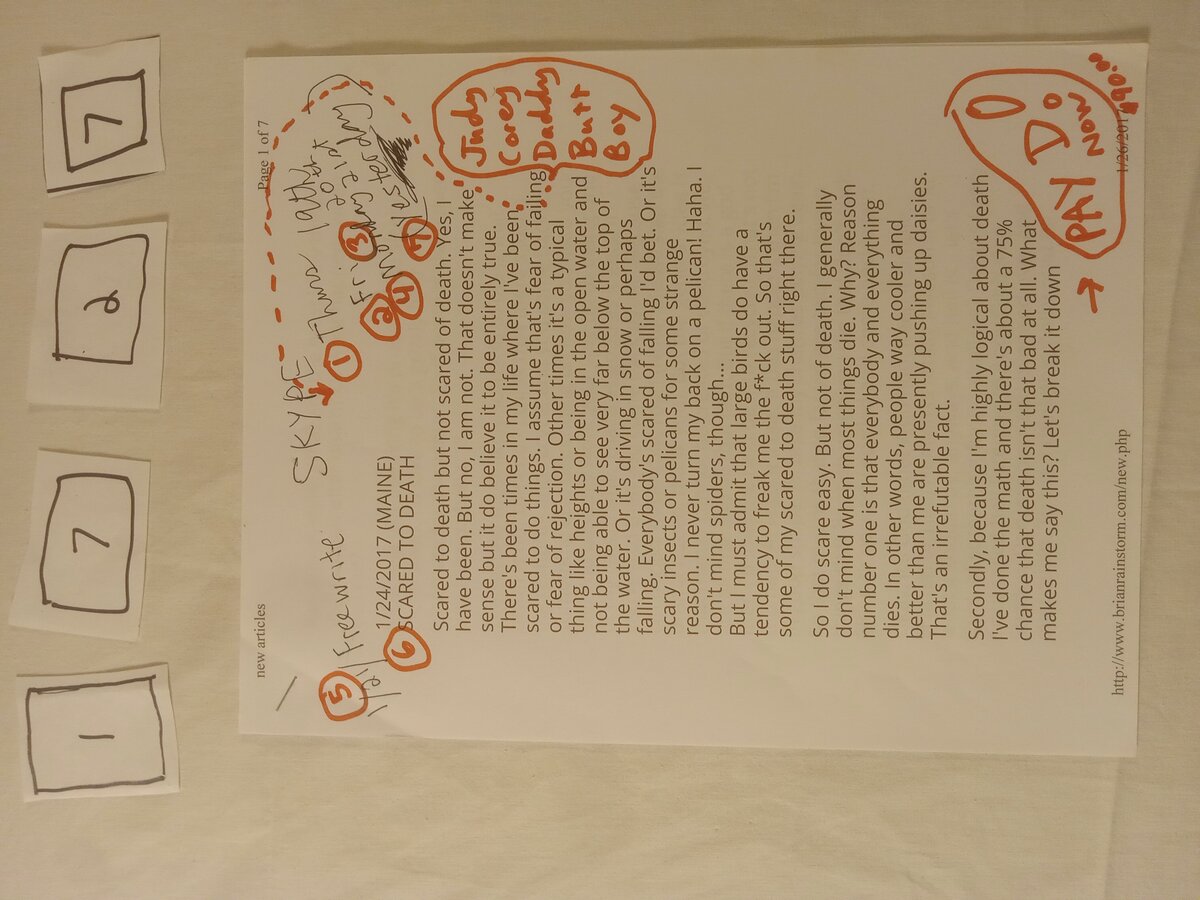 1
7
2
7
new articles
Page 1 of 7
SKYPE
① Thurs
② Fri
③
④
⑦
⑤ Freewrite
⑥
1/24/2017 (MAINE)
SCARED TO DEATH
Judy
Corey
Daddy
Butt
Boy
Scared to death but not scared of death. Yes, I
have been. But no, I am not. That doesn't make
sense but it do believe it to be entirely true.
There's been times in my life where I've been
scared to do things. I assume that's fear of failing
or fear of rejection. Other times it's a typical
thing like heights or being in the open water and
not being able to see very far below the top of
the water. Or it's driving in snow or perhaps
falling. Everybody's scared of falling I'd bet. Or it's
scary insects or pelicans for some strange
reason. I never turn my back on a pelican! Haha. I
don't mind spiders, though...
But I must admit that large birds do have a
tendency to freak me the f*ck out. So that's
some of my scared to death stuff right there.
So I do scare easy. But not of death. I generally
don't mind when most things die. Why? Reason
number one is that everybody and everything
dies. In other words, people way cooler and
better than me are presently pushing up daisies.
That's an irrefutable fact.
Secondly, because I'm highly logical about death
I've done the math and there's about a 75%
chance that death isn't that bad at all. What
makes me say this? Let's break it down
→ PAY DO
NOW
$90.00
http://www.brianrainstorm.com/new.php
1/26/2017